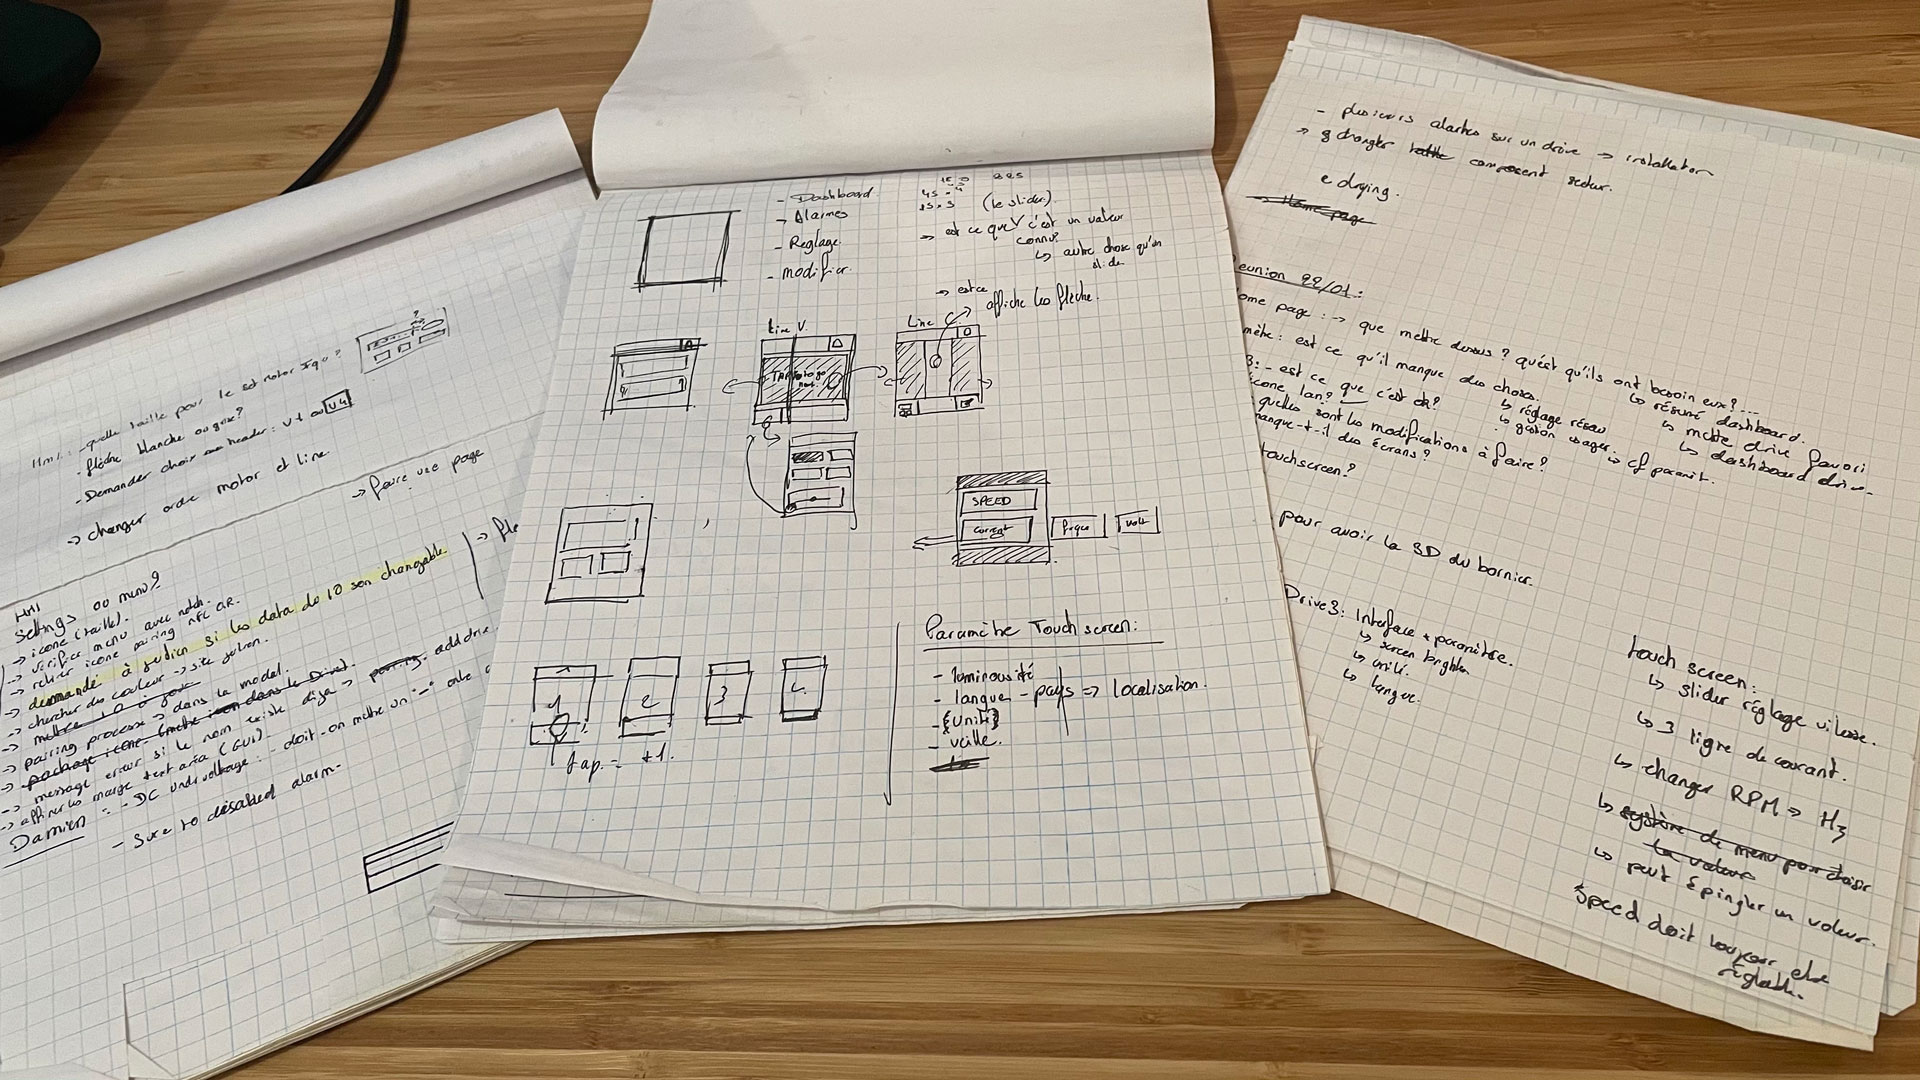 quelle taille pour le set motor
- flèche blanche ou grise?
- Demander choix header: V1 ou V4
→ changer ordre motor et line.
→ faire une page
HMI
Settings ou menu?
→ icone (taille).
→ vérifier menu avec notch.
→ retirer icone pairing NFC QR.
→ demandé à si les data do 10 son changable
→ chercher des couleur → site
→ pairing process → dans le model.
add drive.
→ message erreur si le nom existe
→ affiner les marge text area (GUI).
Damien: - DC undervoltage: - doit-on mettre un "-"
- Sure to disabled alarm.
- Dashboard
→ Alarmes
- Reglage.
- modifier.
(le slider).
→ est ce que V c'est un valeur
connu?
↳ autre chose qu'un
slide
→ est ce
affiche les flèche.
Line V
Line C
SPEED
current
volt
1
2
3
4.
tap. = +1.
Paramètre Touch screen:
- luminosité
- langue - pays => localisation.
- {Unité}
- veille.
- plusieurs alartes sur un drive → installation
→ changer composent
drying.
→ Home page
eunion 22/01:
ome page: → que mettre dessus? qu'est qu'ils ont besoin eux?...
↳ résumé dashboard.
↳ mette drive favori
↳ dashboard drive.
mètre: est ce qu'il manque des choses.
↳ réglage réseau
↳ gestion usager
3: - est ce que c'est ok?
icone lan?
quelles sont les modifications à faire?
manque-t-il des écrans?
cf parent.
touchscreen?
pour avoir la 3D du bornier.
Drive3: Interface + paramètre.
↳ screen
↳ unité.
↳ langue.
touch screen:
↳ slider réglage vitesse.
↳ 3 ligne de courant.
↳ changer RPM => Hz
↳ système de menu pour choisir
la valeur
↳ peut épingler un valeur.
Speed doit toujours etre
réglable.